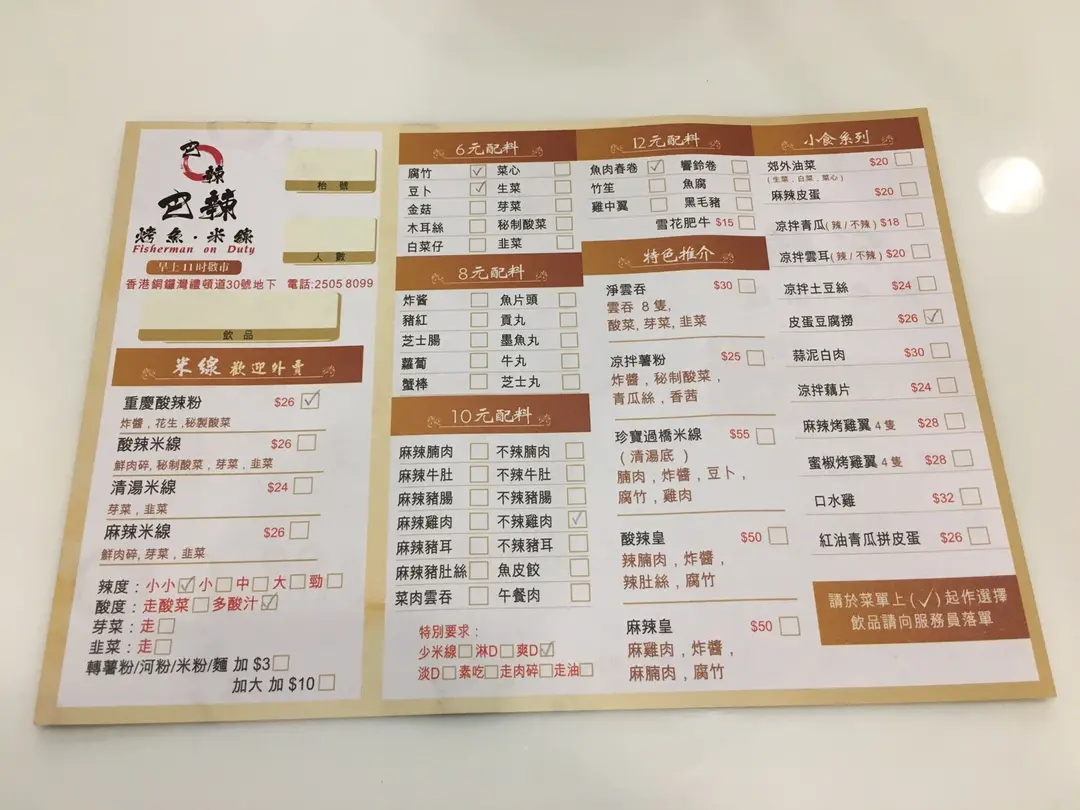 巴辣
巴辣
烤魚·米線
Fisherman on Duty
早上11時啟市
香港銅鑼灣禮頓道30號地下 電話:2505 8099
枱號
人數
飲品
米線 歡迎外賣
重慶酸辣粉 $26 ✓
炸醬,花生,秘製酸菜
酸辣米線 $26
鮮肉碎,秘制酸菜,芽菜,韭菜
清湯米線 $24
芽菜,韭菜
麻辣米線 $26
鮮肉碎,芽菜,韭菜
辣度:小小✓小□中□大□勁□
酸度:走酸菜□多酸汁✓
芽菜:走□
韭菜:走□
轉薯粉/河粉/米粉/麵 加 $3□
加大 加 $10□
6元配料
腐竹 ✓ 菜心
豆卜 ✓ 生菜
金菇 芽菜
木耳絲 秘制酸菜
白菜仔 韭菜
8元配料
炸醬 魚片頭
豬紅 貢丸
芝士腸 墨魚丸
蘿蔔 牛丸
蟹棒 芝士丸
10元配料
麻辣腩肉 不辣腩肉
麻辣牛肚 不辣牛肚
麻辣豬腸 不辣豬腸
麻辣雞肉 不辣雞肉 ✓
麻辣豬耳 不辣豬耳
麻辣豬肚絲 魚皮餃
菜肉雲吞 午餐肉
特別要求:
少米線□淋D□爽D✓
淡D□素吃□走肉碎□走油□
12元配料
魚肉春卷 ✓ 響鈴卷
竹笙 魚腐
雞中翼 黑毛豬
雪花肥牛 $15
特色推介
淨雲吞 $30
雲吞 8 隻,
酸菜,芽菜,韭菜
凉拌薯粉 $25
炸醬,秘制酸菜,
青瓜絲,香茜
珍寶過橋米線 $55
(清湯底)
腩肉,炸醬,豆卜,
腐竹,雞肉
酸辣皇 $50
辣腩肉,炸醬,
辣肚絲,腐竹
麻辣皇 $50
麻雞肉,炸醬,
麻腩肉,腐竹
小食系列
郊外油菜 $20
(生菜,白菜,菜心)
麻辣皮蛋 $20
凉拌青瓜(辣/不辣) $18
凉拌雲耳(辣/不辣) $20
凉拌土豆絲 $24
皮蛋豆腐撈 $26 ✓
蒜泥白肉 $30
凉拌藕片 $24
麻辣烤雞翼 4 隻 $28
蜜椒烤雞翼 4 隻 $28
口水雞 $32
紅油青瓜拼皮蛋 $26
請於菜單上(✓)起作選擇
飲品請向服務員落單